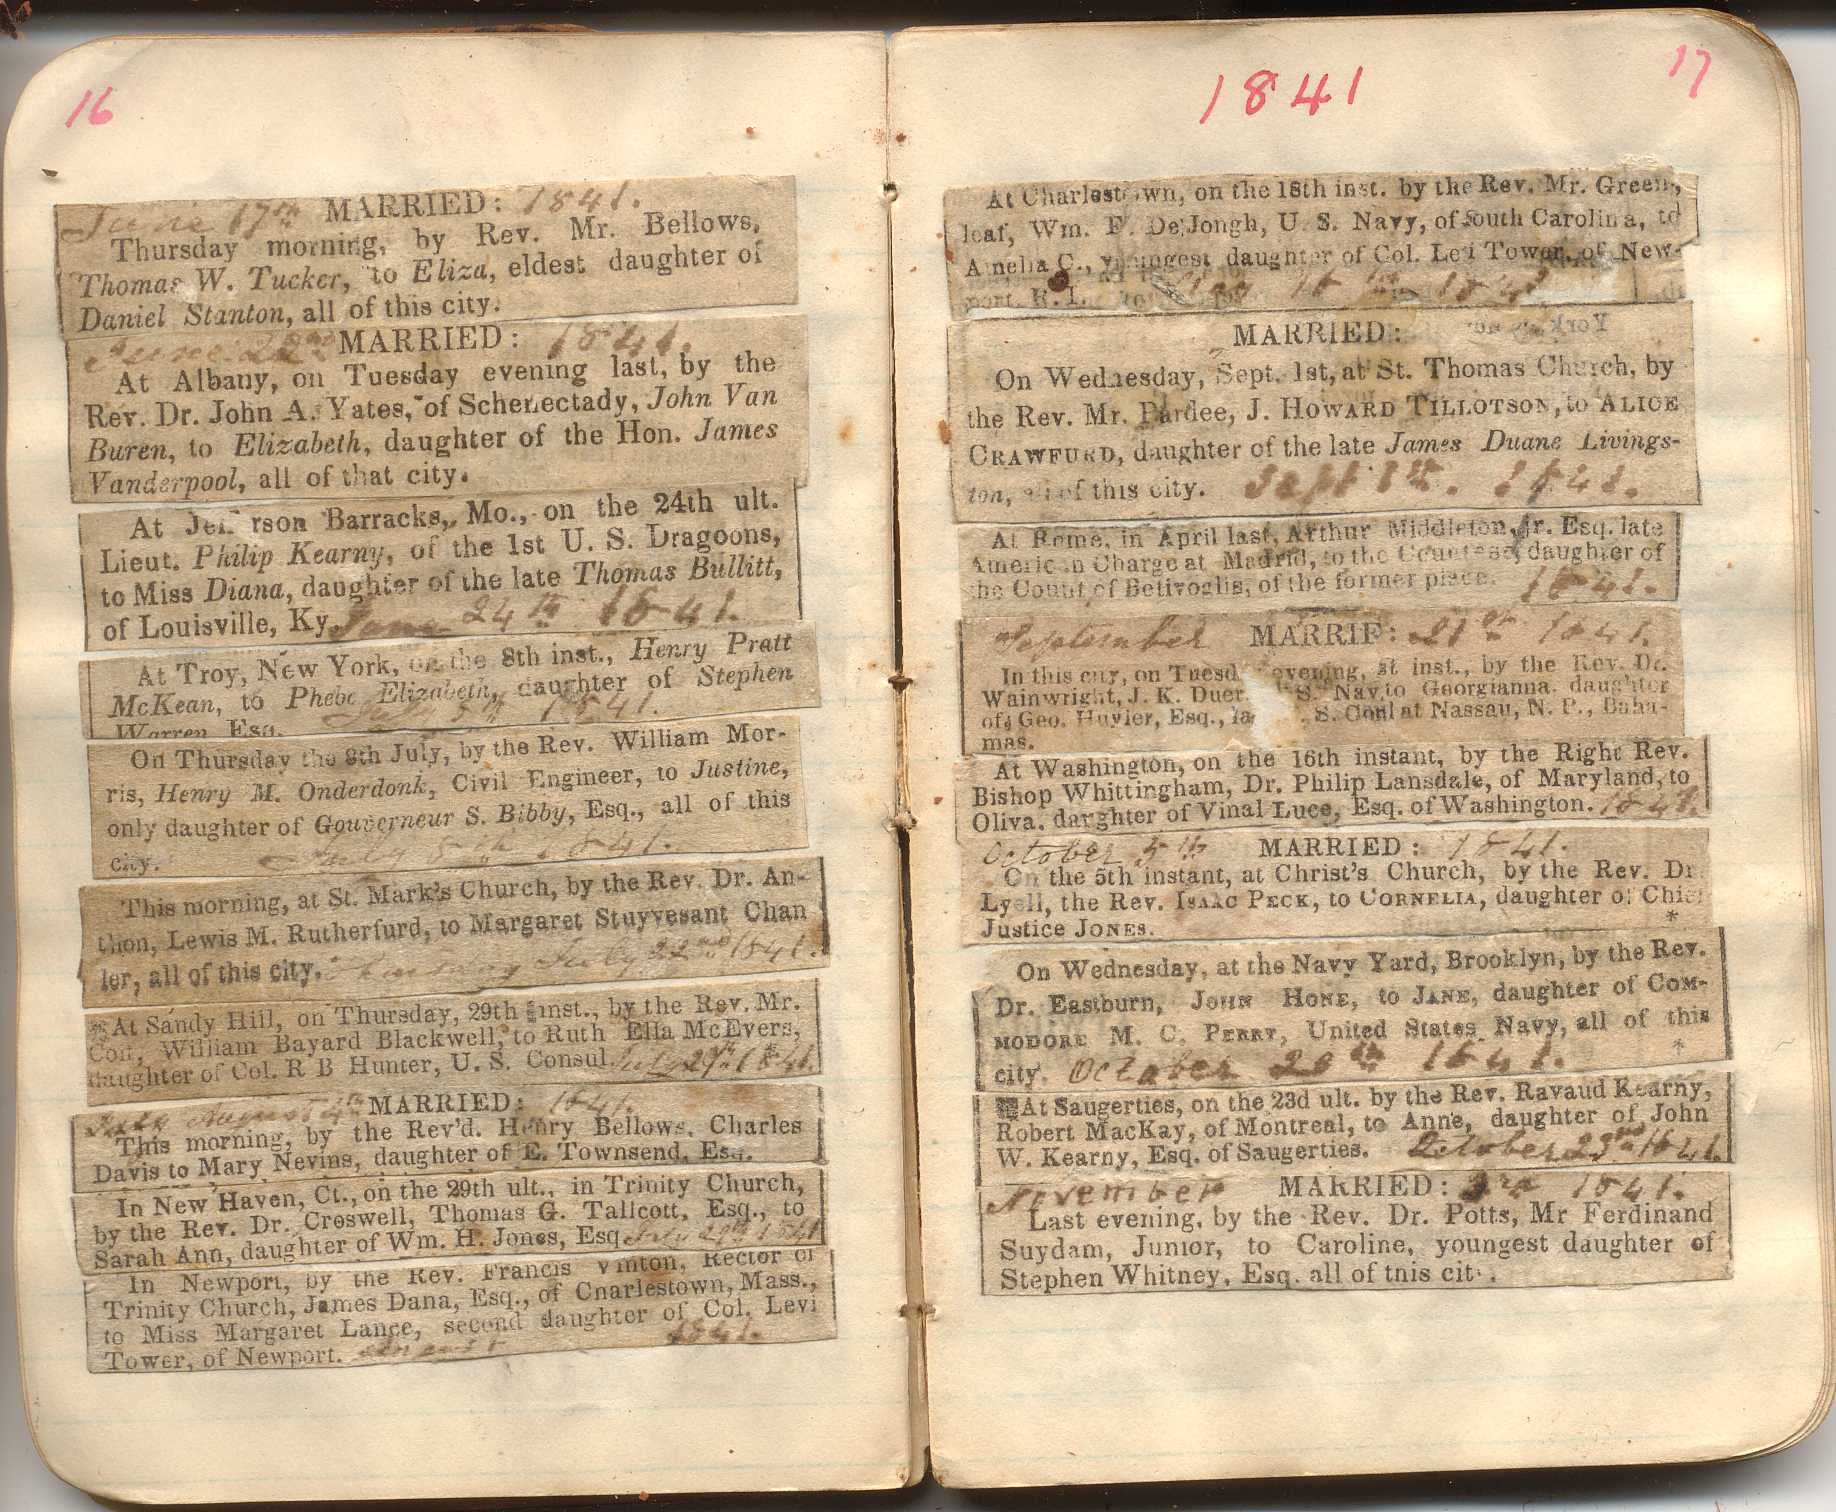 16
June 17th MARRIED: 1841.
Thursday morning, by Rev. Mr. Bellows,
Thomas W. Tucker, to Eliza, eldest daughter of
Daniel Stanton, all of this city.
June 22nd MARRIED: 1841.
At Albany, on Tuesday evening last, by the
Rev. Dr. John A. Yates, of Schenectady, John Van
Buren, to Elizabeth, daughter of the Hon. James
Vanderpool, all of that city.
At Jefferson Barracks, Mo., on the 24th ult.
Lieut. Philip Kearny, of the 1st U. S. Dragoons,
to Miss Diana, daughter of the late Thomas Bullitt,
of Louisville, Ky. June 24th 1841.
At Troy, New York, on the 8th inst., Henry Pratt
McKean, to Phebe Elizabeth, daughter of Stephen
Warren Esq. July 8th 1841.
On Thursday the 8th July, by the Rev. William Mor-
ris, Henry M. Onderdonk, Civil Engineer, to Justine,
only daughter of Gouverneur S. Bibby, Esq., all of this
city. July 8th 1841.
This morning, at St. Mark's Church, by the Rev. Dr. An-
thon, Lewis M. Rutherfurd, to Margaret Stuyvesant Chan
ler, all of this city. Thursday July 22nd 1841.
At Sandy Hill, on Thursday, 29th inst., by the Rev. Mr.
Coit, William Bayard Blackwell, to Ruth Ella McEvers,
daughter of Col. R B Hunter, U. S. Consul July 29th 1841.
July August 4th MARRIED: 1841.
This morning, by the Rev'd. Henry Bellows, Charles
Davis to Mary Nevins, daughter of E. Townsend, Esq.
In New Haven, Ct., on the 29th ult., in Trinity Church,
by the Rev. Dr. Croswell, Thomas G. Tallcott, Esq., to
Sarah Ann, daughter of Wm. H. Jones, Esq July 29th 1841
In Newport, by the Rev. Francis Vinton, Rector of
Trinity Church, James Dana, Esq., of Charlestown, Mass.,
to Miss Margaret Lance, second daughter of Col. Levi
Tower, of Newport. August 1841.
1841
17
At Charlestown, on the 18th inst. by the Rev. Mr. Green-,
leaf, Wm. F. DeJongh, U. S. Navy, of South Carolina, to
Amelia C., youngest daughter of Col. Levi Tower, of New-
port, R.I. 18th 1841
MARRIED:
On Wednesday, Sept. 1st, at St. Thomas Church, by
the Rev. Mr. Pardee, J. HOWARD TILLOTSON, to ALICE
CRAWFURD, daughter of the late James Duane Livings-
ton, all of this city. Sept 1st. 1841.
At Rome, in April last, Arthur Middleton, jr. Esq. late
American Charge at Madrid, to the Countess, daughter of
the Count of Betivoglis, of the former place. 1841.
September MARRIE: 21st 1841.
In this city, on Tuesd evening, st inst., by the Rev. Dr.
Wainwright, J. K. Duer, S. Nav, to Georgianna, daughter
of Geo. Huyler, Esq., la S. Conl at Nassau, N. P., Baha-
mas.
At Washington, on the 16th instant, by the Right Rev.
Bishop Whittingham, Dr. Philip Lansdale, of Maryland, to
Oliva, daughter of Vinal Luce, Esq. of Washington. 1841.
October 5th MARRIED: 1841.
On the 5th instant, at Christ's Church, by the Rev. Dr
Lyell, the Rev. ISAAC PECK, to CORNELIA, daughter of Chief
Justice JONES. *
On Wednesday, at the Navy Yard, Brooklyn, by the Rev.
Dr. Eastburn, JOHN HONE, to JANE, daughter of COM-
MODORE M. C. PERRY, United States Navy, all of this
city. October 20th 1841. *
At Saugerties, on the 23d ult. by the Rev. Ravaud Kearny,
Robert MacKay, of Montreal, to Anne, daughter of John
W. Kearny, Esq. of Saugerties. October 23rd 1841.
November MARRIED: 3rd 1841.
Last evening, by the Rev. Dr. Potts, Mr Ferdinand
Suydam, Junior, to Caroline, youngest daughter of
Stephen Whitney, Esq. all of this city.